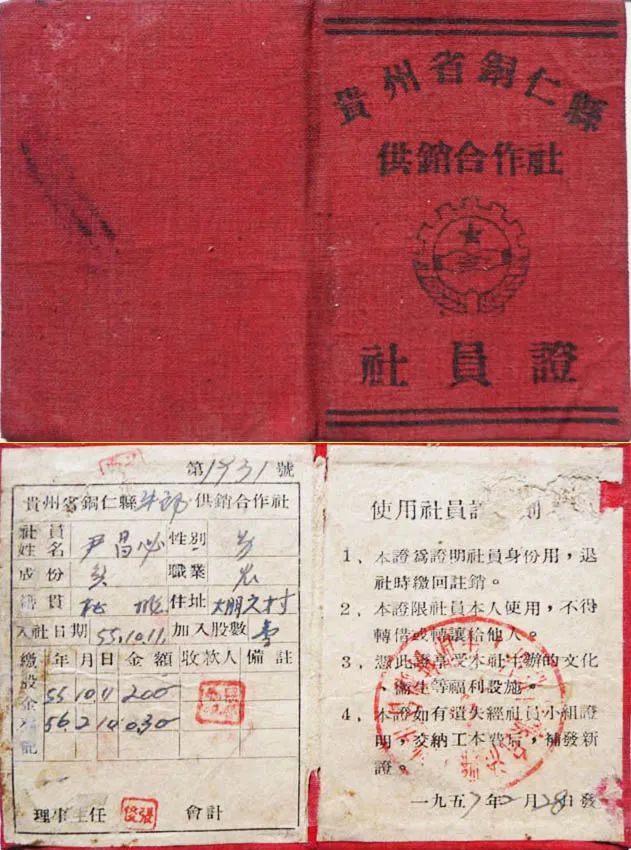 貴州省銅仁縣
供銷合作社
社員證
第1931號
貴州省銅仁縣 供銷合作社
社員姓名 尹昌 性別 男
成份 貧 職業 农
籍貫 住址 村
入社日期 55.10.11 加入股數 壹
繳股金 記
年 月 日 金額 收款人 備註
55 10 11 2.00
56 2 10 0.30
理事主任 會計
使用社員證 則
1、本證爲證明社員身份用，退
社時繳回註銷。
2、本證限社員本人使用，不得
轉借或轉讓給他人。
3、憑此證享受本社主辦的文化
、衞生等福利設施。
4、本證如有遺失經社員小組證
明，交納工本費后，補發新
證。
一九五7年2月28日發